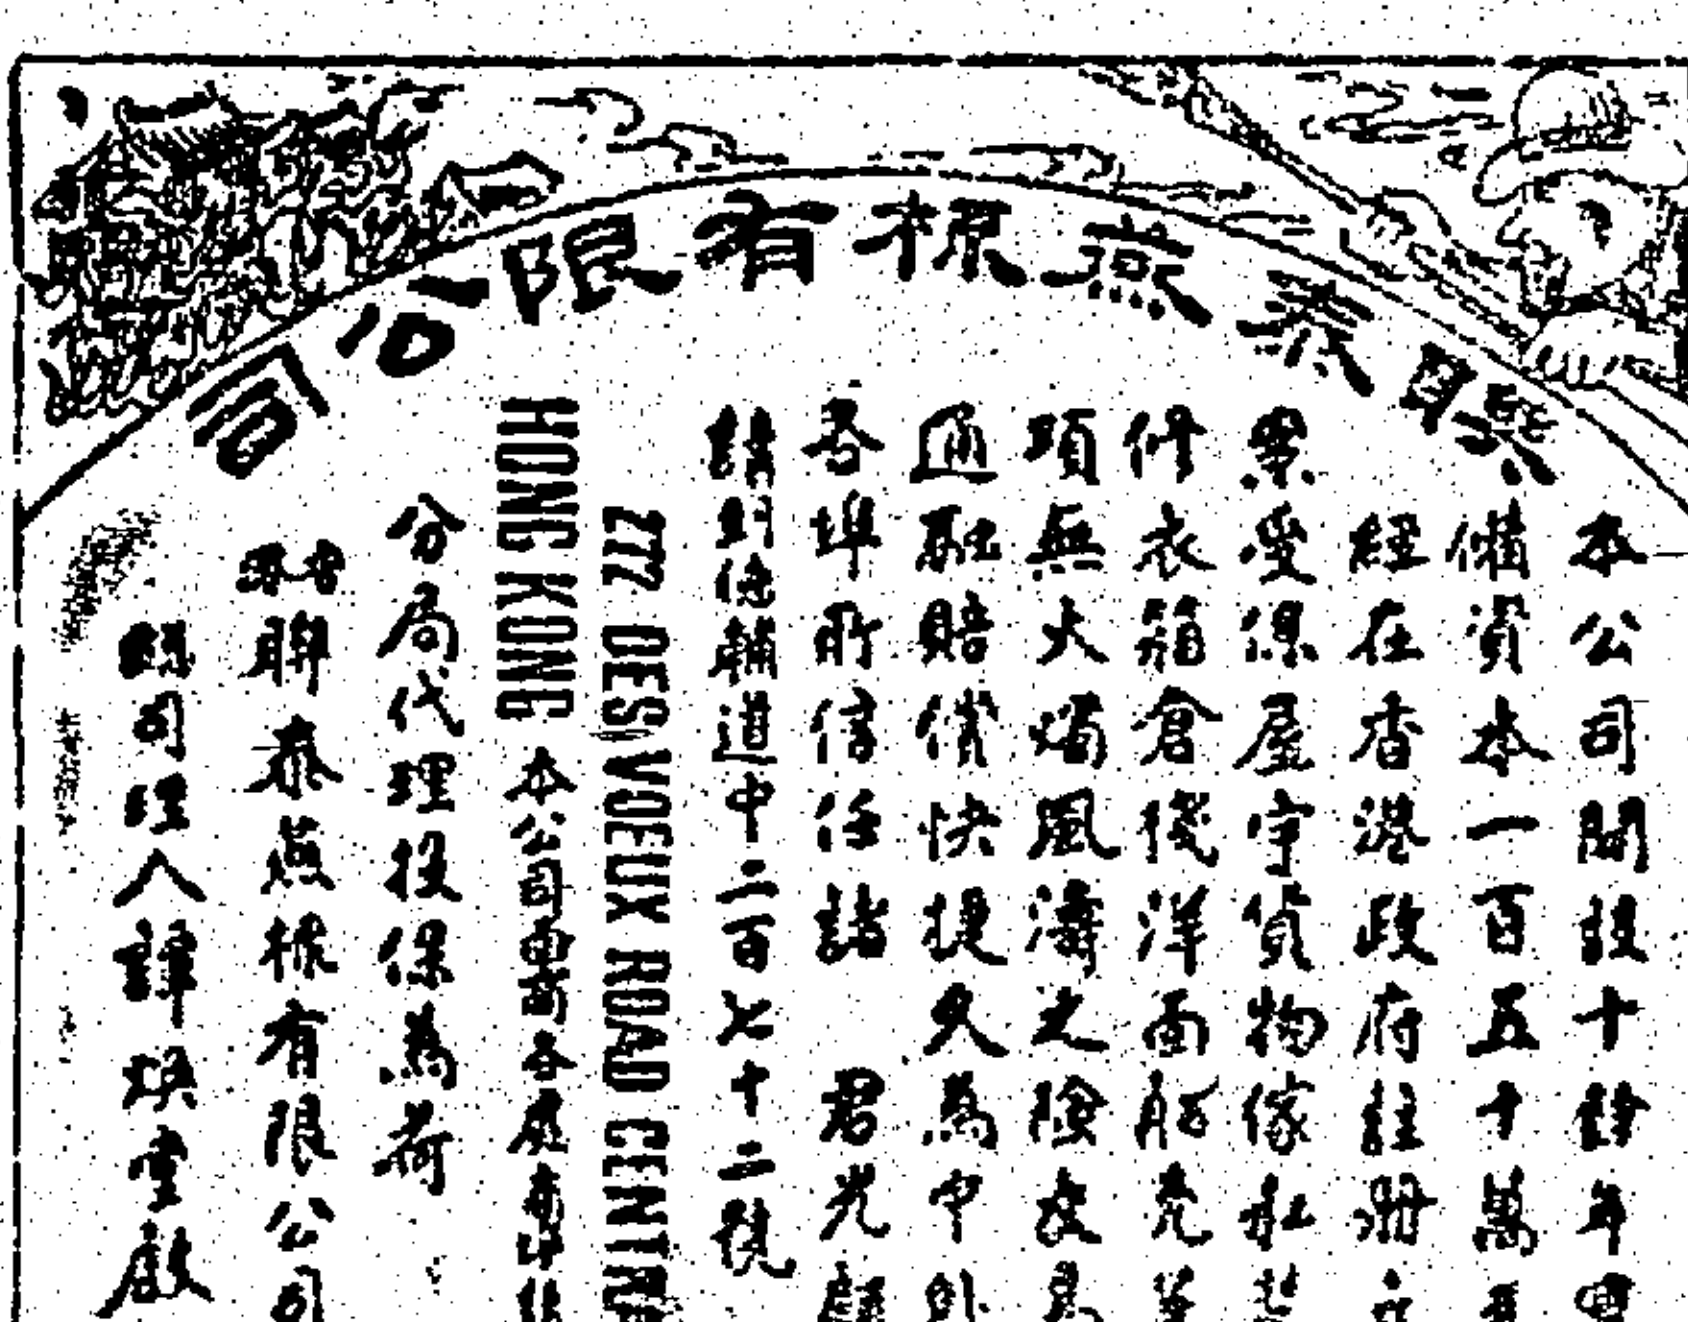 聯泰燕梳有限公司
本公司開設十餘年
儲資本一百五十萬
經在香港政府註冊立
受保屋宇貨物傢私
衣箱倉棧洋面船壳
項無火燭風濤之險
通融賠償快捷久為中外
各埠所信任諸 君光顧
請到德輔道中二百七十二號
277 DES VOEUX ROAD CENTRA
HONG KONG 本公司
分局代理投保為荷
香港聯泰燕梳有限公司
總司理人譚煥堂啟